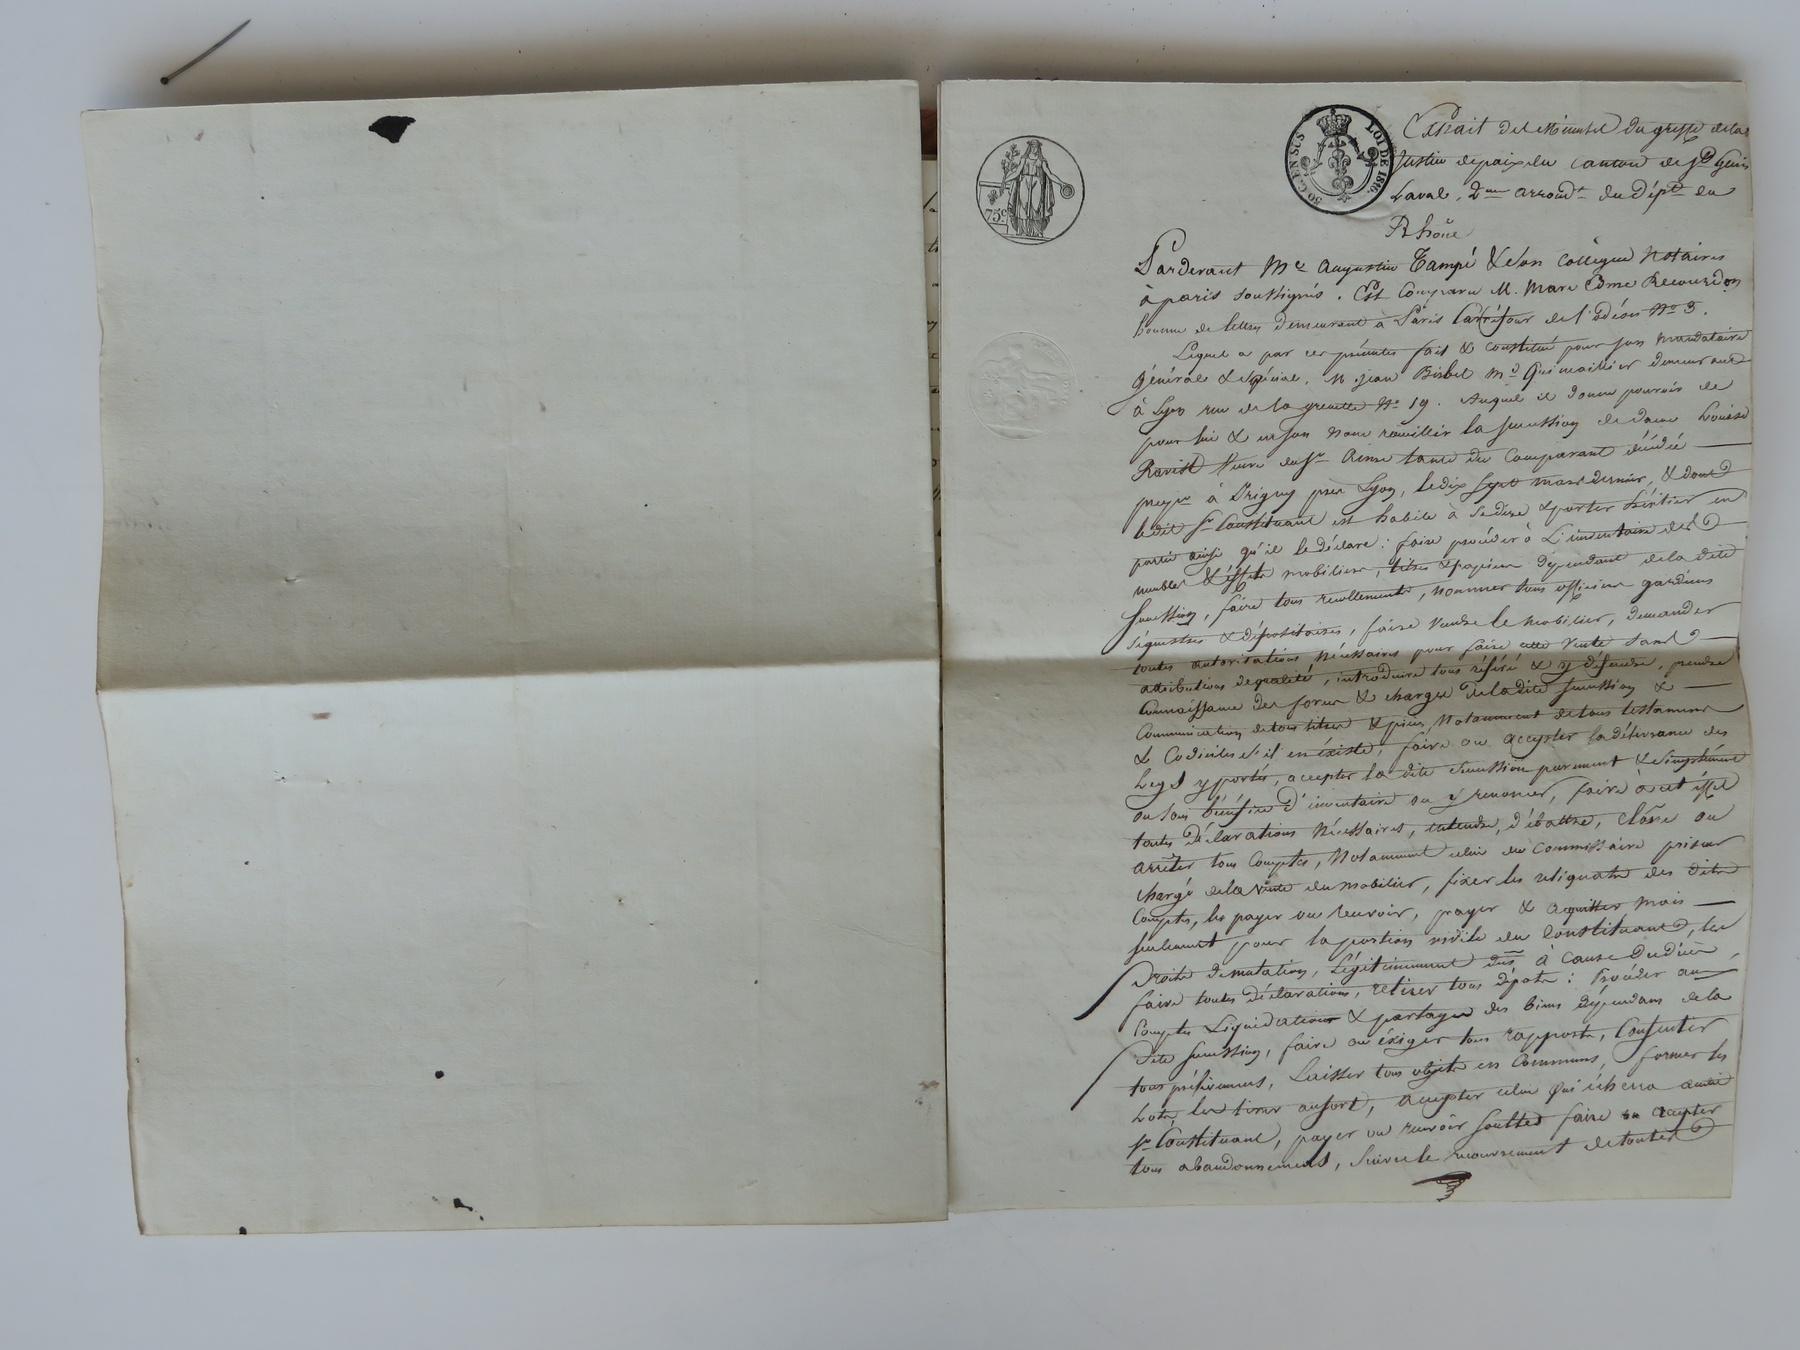 Extrait des Minutes du greffe de la
Justice de paix du canton de St Genis
Laval, 2me arrondt du Dépt du
Rhône
50 C. EN SUS
LOI DE 1816.
75c
Pardevant Me Augustin Tampé & son Collègue Notaires
à paris soussignés. Est Comparu M. Marc Edme
homme de lettres demeurant à Paris Carrefour de l'odéon No 3.
Lequel a par ces présentes fait & constitué pour son mandataire
général & spécial, M. jean md Quincaillier demeurant
à Lyon rue de la grenette No 19. Auquel il donne pouvoir de
pour lui & en son nom recueillir la succession de dame Louise
Veuve du Sr tante du Comparant décédée
à Irigny près Lyon, le dix sept mars dernier, & dont
ledit Sr Constituant est habile à se dire & porter héritier en
partie ainsi qu'il le déclare : faire procéder à L'inventaire des
meubles & effets mobiliers, titres & papiers dépendant de la dite
succession, faire tous recollements, nommer tous officiers gardiens
séquestres & dépositaires, faire vendre le mobilier, demander
toutes autorisations nécessaires pour faire cette vente sans
attributions de qualité, introduire tous référé & y défendre, prendre
Connaissance des forces & charges de la dite succession &
Communication de tous titres & pièces, Notamment de tous testaments
& Codiciles s'il en éxiste, faire ou accepter la délivrance des
Legs y portés, accepter la dite succession purement & simplement
ou sous bénéfice d'inventaire ou y renoncer, faire à cet éffet
toutes déclarations Nécessaires, entendre, débattre, clôre ou
arrêter tous Comptes, Notamment celui du Commissaire priseur
chargé de la vente du mobilier, fixer les reliquats des dits
Comptes, les payer ou recevoir, payer & acquitter mais
seulement pour la portion virile du Constituant, les
Droits de mutation, Légitimement dus à cause du décès,
faire toutes déclarations, retirer tous dépots : Procéder aux
Comptes Liquidations & partages des biens dépendans de la
dite succession, faire ou éxiger tous rapports, Consentir
tous prélevemens, Laisser tous objets en Communs, former les
Lots, les tirer au sort, accepter celui qui écherra audit
Sr Constituant, payer ou recevoir soultes faire ou accepter
tous abandonnemens, suivre le recouvrement de toutes